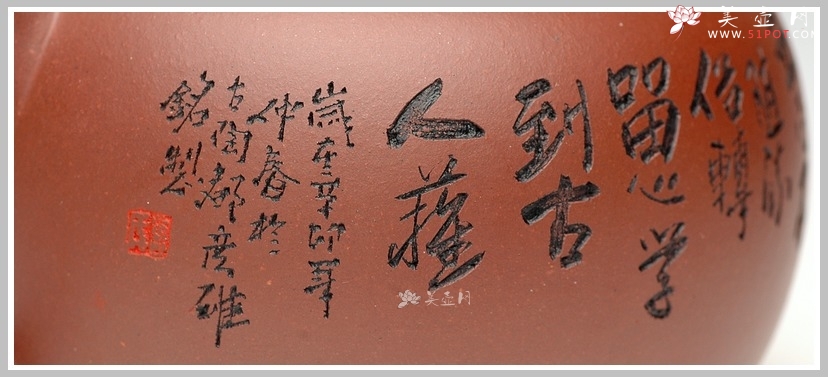 美壶网
WWW.51POT.COM
俗轉
留心学
到古
人難
歲在辛卯年
仲春於
古陶都
銘製
美壶网